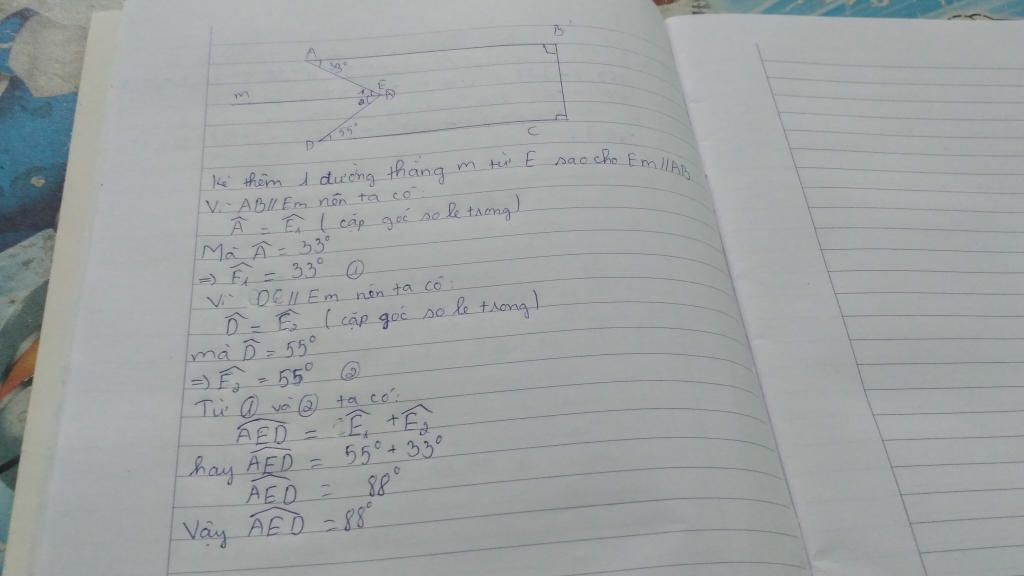 A
B
33°
m
1
E
2
55°
D
C
Kẻ thêm 1 đường thẳng m từ E sao cho Em//AB
Vì AB//Em nên ta có:
Â = Ê₁ (cặp góc so le trong)
Mà Â = 33°
=> Ê₁ = 33° ①
Vì DC//Em nên ta có:
D̂ = Ê₂ (cặp góc so le trong)
mà D̂ = 55°
=> Ê₂ = 55° ②
Từ ① và ② ta có:
AED = Ê₁ + Ê₂
hay AED = 55° + 33°
AED = 88°
Vậy AED = 88°